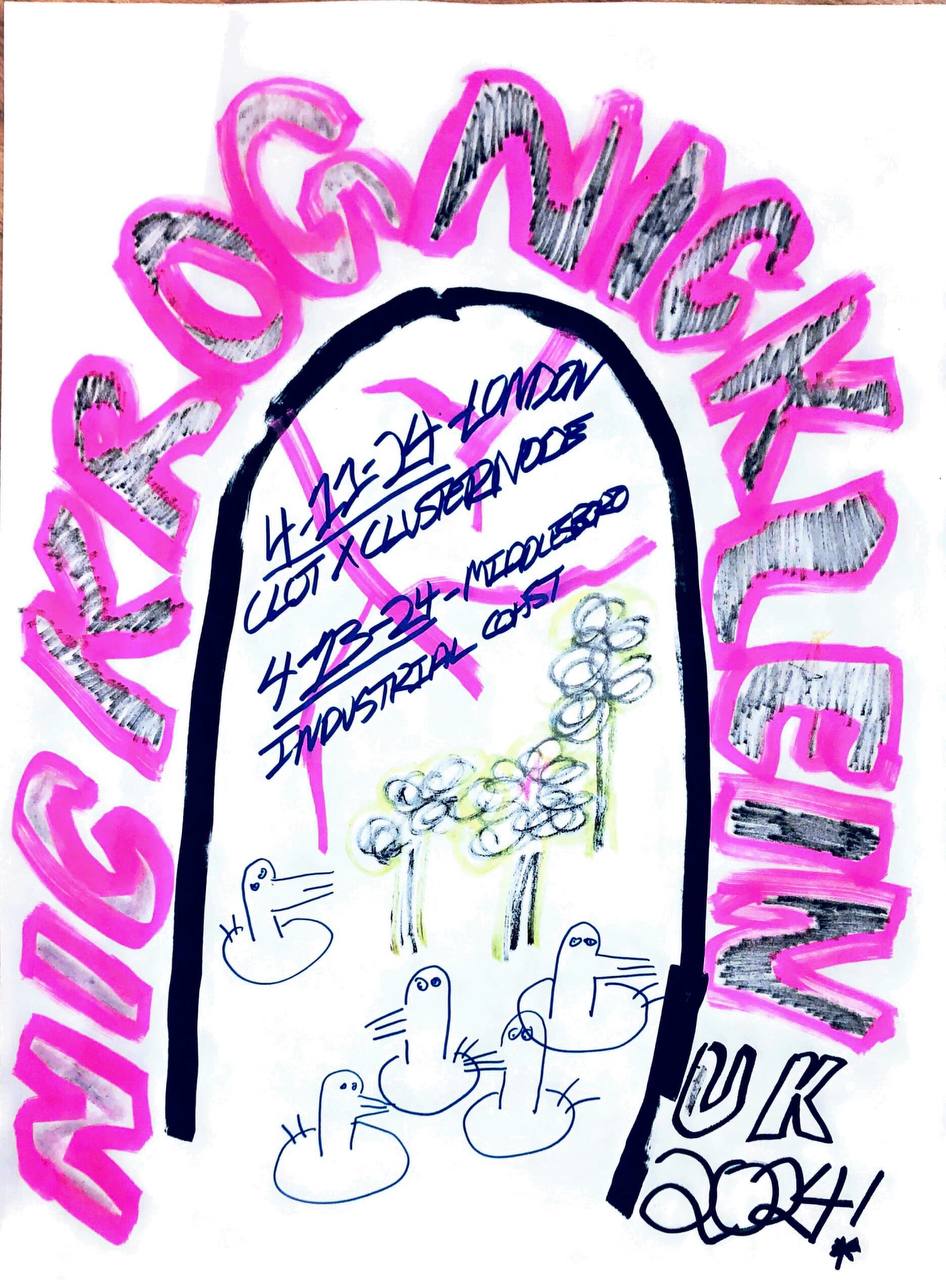 NIC KROG NICK KLEIN
4-11-24-LONDON
CLOT X CLUSTERNODE
4-13-24-MIDDLESBORO
INDUSTRIAL COAST
UK
2024!